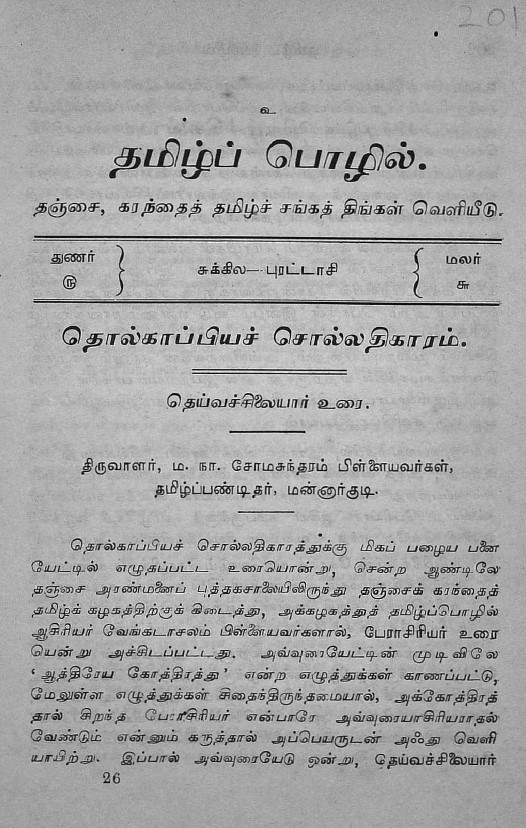 201
உ
தமிழ்ப் பொழில்.
தஞ்சை, கரந்தைத் தமிழ்ச் சங்கத் திங்கள் வெளியீடு.
துணர் ௫ } சுக்கில—புரட்டாசி { மலர் ௬
தொல்காப்பியச் சொல்லதிகாரம்.
தெய்வச்சிலையார் உரை.
திருவாளர், ம. நா. சோமசுந்தரம் பிள்ளையவர்கள்,
தமிழ்ப்பண்டிதர், மன்னார்குடி.
தொல்காப்பியச் சொல்லதிகாரத்துக்கு மிகப் பழைய பனை
யேட்டில் எழுதப்பட்ட உரையொன்று, சென்ற ஆண்டிலே
தஞ்சை அரண்மனைப் புத்தகசாலையிலிருந்து தஞ்சைக் கரந்தைத்
தமிழ்க் கழகத்திற்குக் கிடைத்து, அக்கழகத்துத் தமிழ்ப்பொழில்
ஆசிரியர் வேங்கடாசலம் பிள்ளையவர்களால், பேராசிரியர் உரை
யென்று அச்சிடப்பட்டது. அவ்வுரையேட்டின் முடிவிலே
‘ஆத்திரேய கோத்திரத்து’ என்ற எழுத்துக்கள் காணப்பட்டு,
மேலுள்ள எழுத்துக்கள் சிதைந்திருந்தமையால், அக்கோத்திரத்
தாற் சிறந்த பேராசிரியர் என்பாரே அவ்வுரையாசிரியராதல்
வேண்டும் என்னும் கருத்தால் அப்பெயருடன் அஃது வெளி
யாயிற்று. இப்பால் அவ்வுரையேடு ஒன்று, தெய்வச்சிலையார்
26